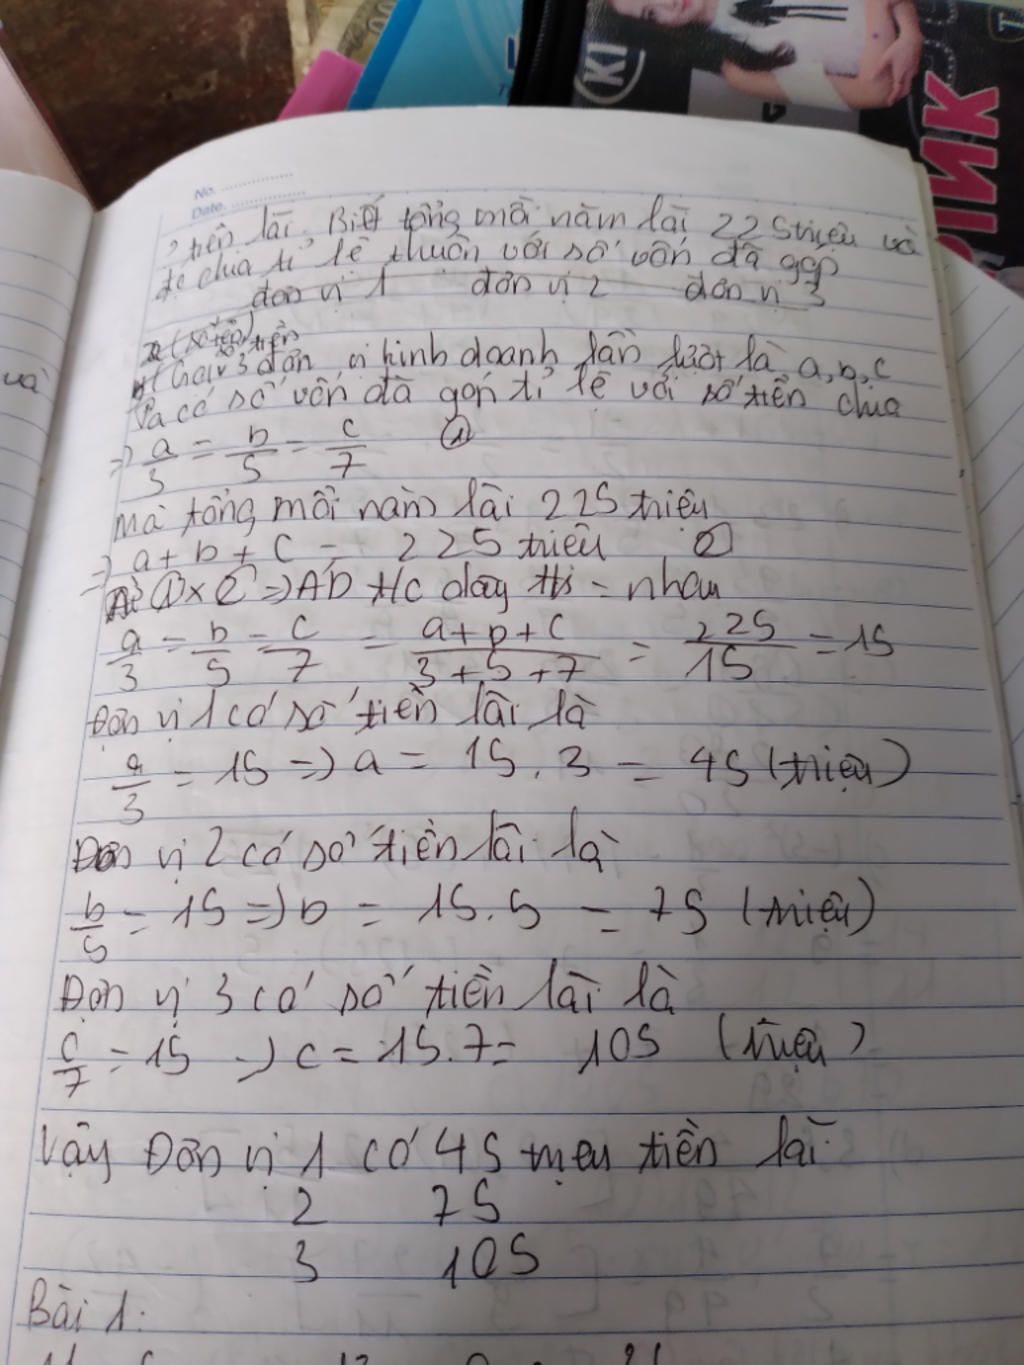 KI
PINK
No.
Date.
tiền lãi. Biết tổng mỗi năm lãi 225 triệu và
đc chia tỉ lệ thuận với số vốn đã góp
đơn vị 1 đơn vị 2 đơn vị 3
(số tiền)
số tiền
3 đơn vị kinh doanh lần lượt là a, b, c
Ta có số vốn đã góp tỉ lệ với số tiền chia
=> a/3 = b/5 = c/7 ①
Mà tổng mỗi năm lãi 225 triệu
=> a + b + c = 225 triệu ②
Từ ① x ② => AD t/c dãy tỉ số = nhau
a/3 = b/5 = c/7 = a+b+c/3+5+7 = 225/15 = 15
Đơn vị 1 có số tiền lãi là
a/3 = 15 => a = 15.3 = 45 (triệu)
Đơn vị 2 có số tiền lãi là
b/5 = 15 => b = 15.5 = 75 (triệu)
Đơn vị 3 có số tiền lãi là
c/7 = 15 => c = 15.7 = 105 (triệu)
Vậy Đơn vị 1 có 45 triệu tiền lãi
2 75
3 105
Bài 1:
và